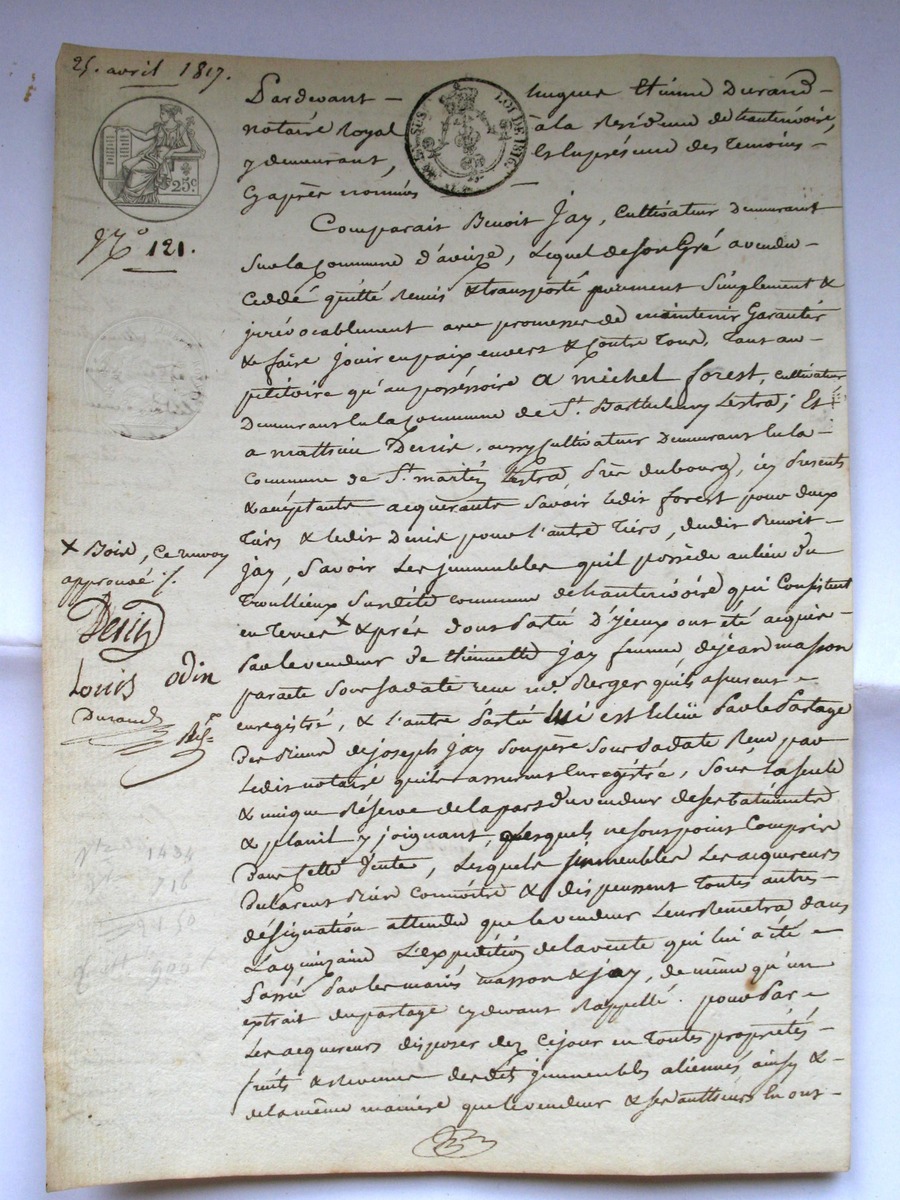 25. avril 1817.
25c
LOI DE 1816.
N.o 121.
Pardevant – hugues Etienne Durand
notaire Royal à la Residence de hauterivoire,
y demeurant, et en presence des temoins –
Cyaprès nommés –
Comparait Benoit Jay, Cultivateur demeurant
sur la Commune d'aveize, Lequel de son Gré a vendu –
Ceddé quitté Remis & transporté purement Simplement &
irrévocablement avec promesse de maintenir Garantir
& faire jouir en paix envers & Contre Tous, Tant au –
petitoire qu'au posséssoire A michel forest, cultivateur
demeurant en la Commune de St. Barthelemy Lestra; Et
a mathieu Denis, aussy Cultivateur demeurant en la –
Commune de St. martin Lestra, près du bourg, icy presents
& acceptants acquerants savoir ledit forest pour deux
tiers & ledit Denis pour l'autre Tiers, dudit Benoit –
Jay, Savoir Les jmmeubles quil possède au lieu du
Troullieux susdite commune de hauterivoire qui Consistent
en Terres x & prés dont Partie d'jceux ont été acquis –
Par le vendeur de Etiennette Jay femme de jean masson
par acte sous sa date reçu me. Berger qu'ils assurent –
enregistré, & l'autre Partie lui est échüe Par le Partage
des Biens de joseph Jay son père sous sa date Reçu par
Ledit notaire qu'ils assurent Enregistré, Sous La seule
& unique Réserve de la part du vendeur de ses batiments
& plait y joignant, lesquels ne sont point Compris
dans Cette Vente, Lesquels jmmeubles Les acquereurs
declarent Bien Connoitre & dispensent toutes autres –
désignation attendu que le vendeur Leur Remetra dans
La quinzaine L'expedition de la vente qui lui a été –
Passé Par les mariés masson & jay, de même qu'un
extrait du partage cy devant Rappellé. pour Par –
Les acquereurs disposer dez Cejour en Toutes propriétés –
fruits & revenus desdits jmmeubles aliennés ainsy &
de la même manière que le vendeur & ses autheurs En ont –
x Bois, Ce renvoy
approuvé ./.
Denis
Louis odin
Durand
1434
716
2150